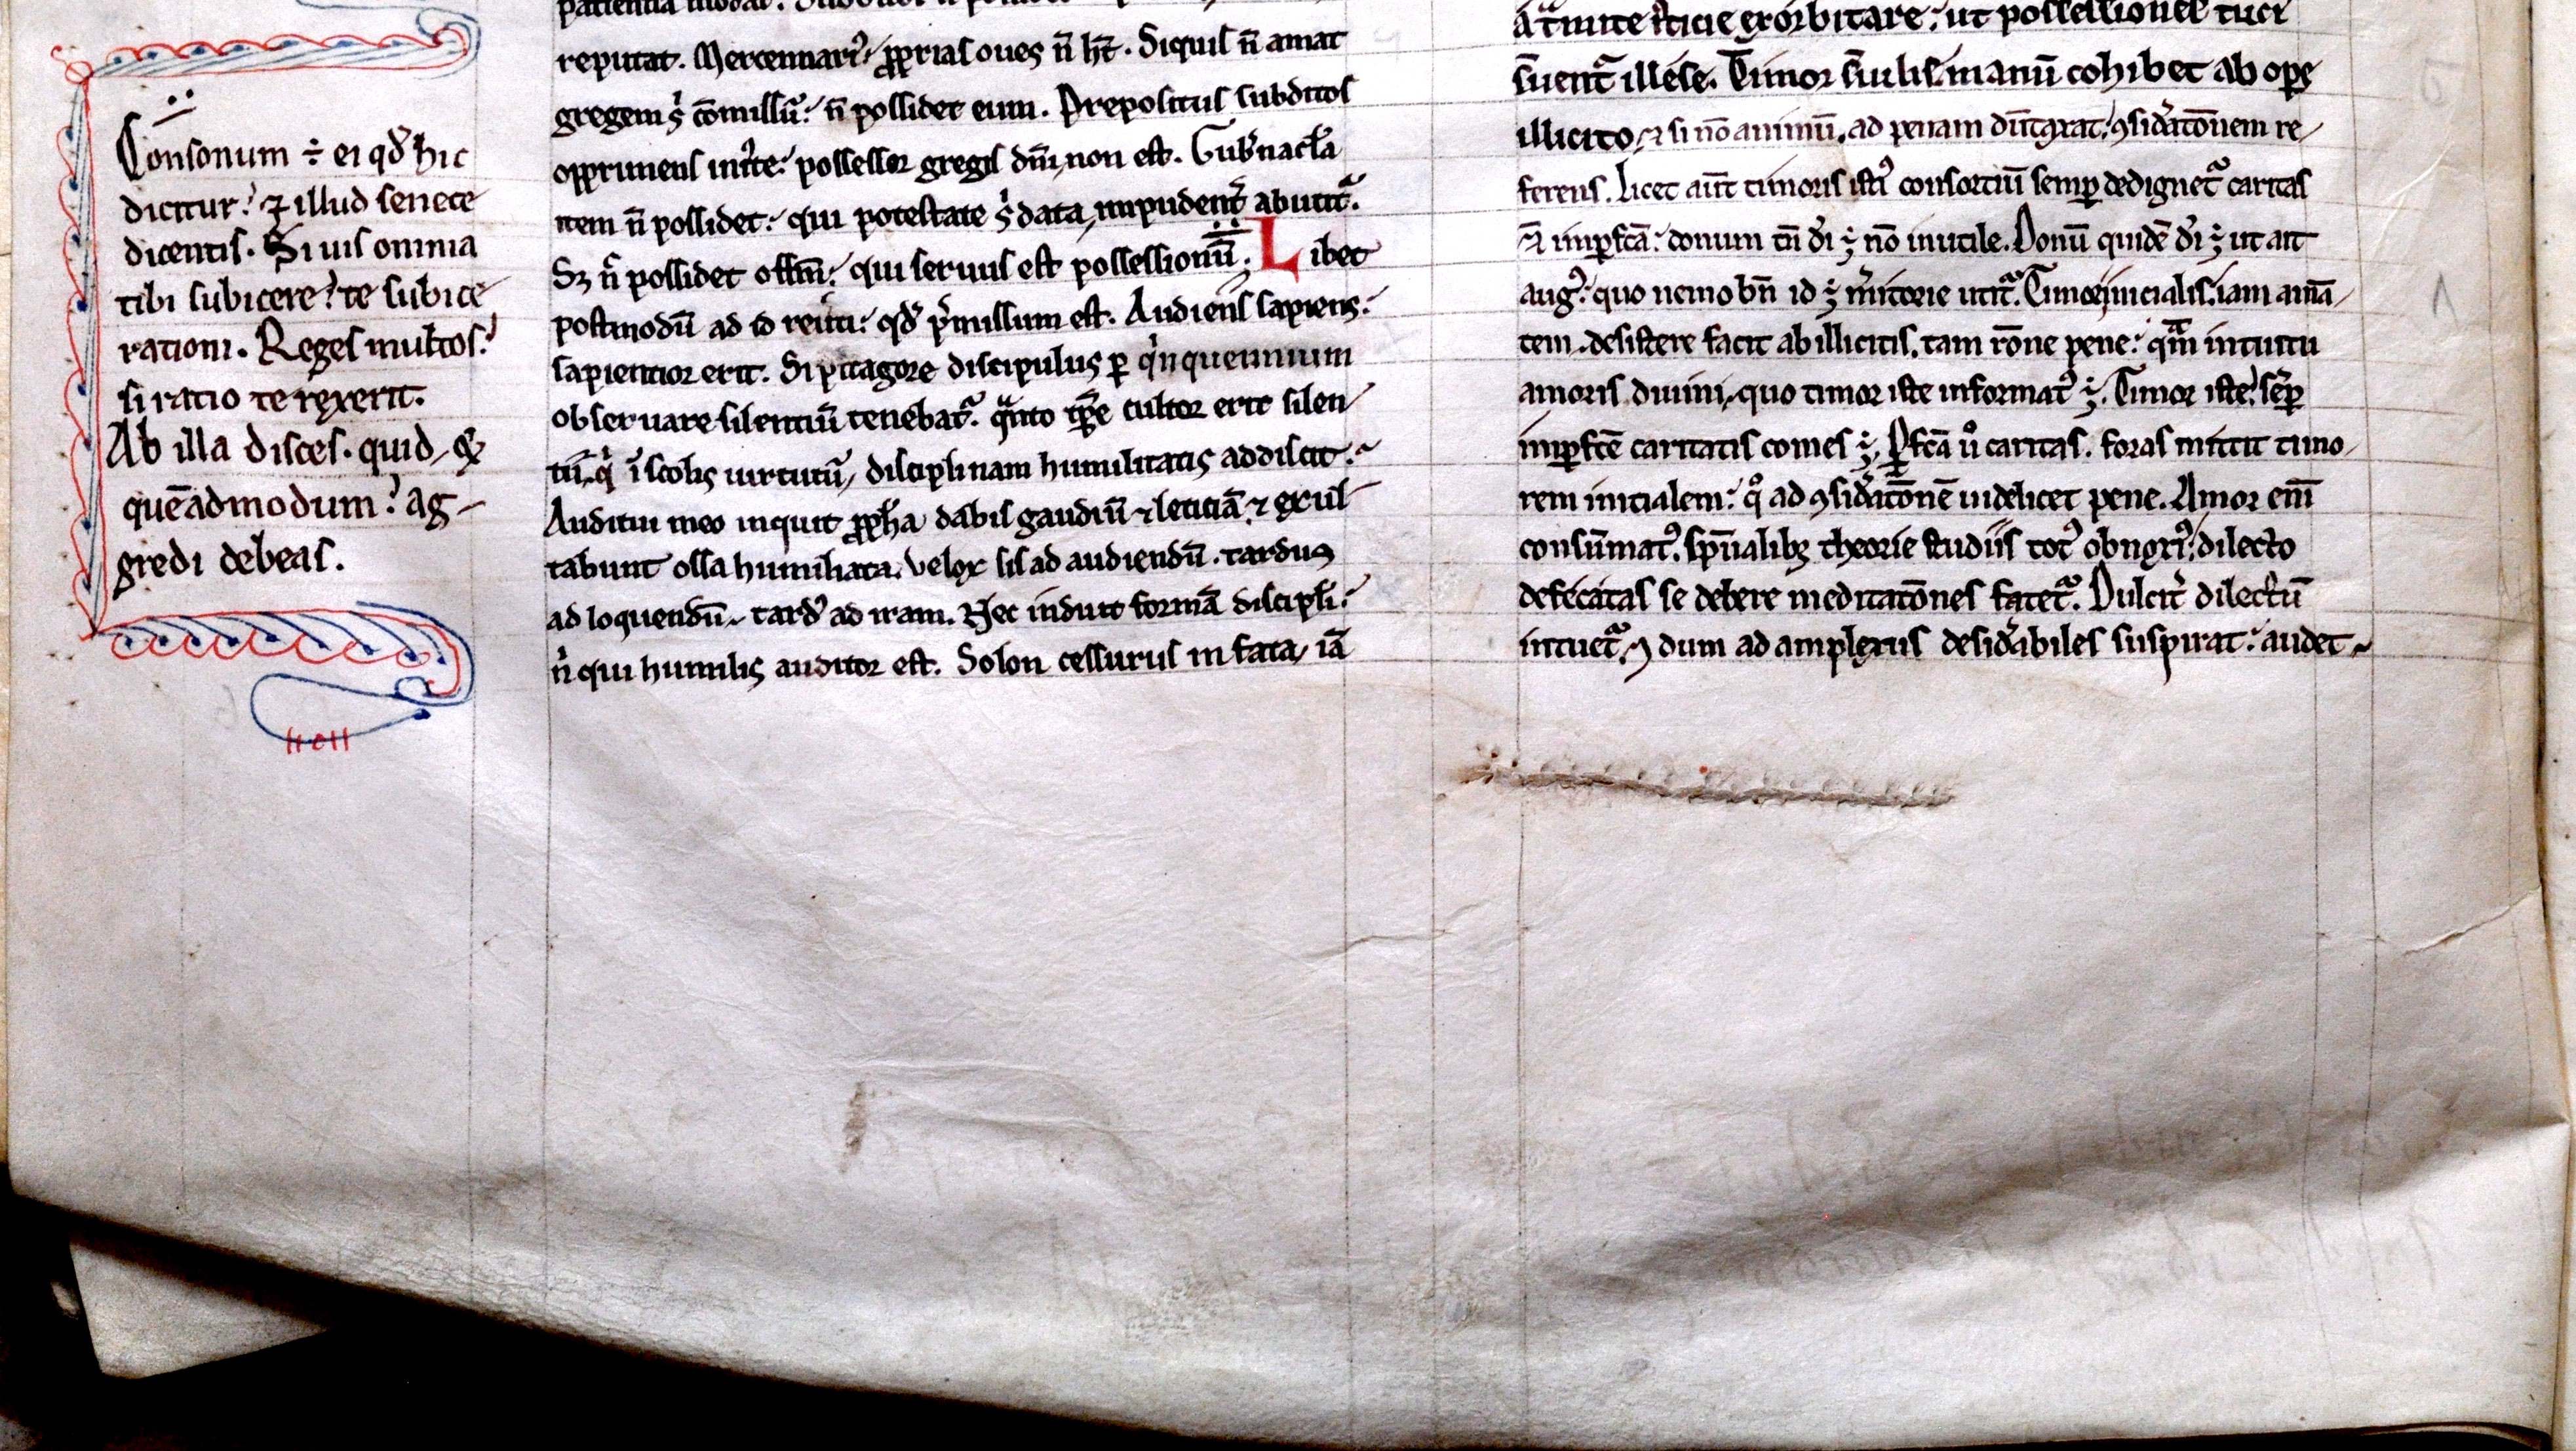 Consonum ÷ ei qđ hic
dicitur? ⁊ illud senece
dicentis. Si uis omnia
tibi subicere? te subice
rationi. Reges multos?
si ratio te rexerit.
Ab illa disces. quid, &
quēadmodum? ag-
gredi debeas.
reputat. Mercennariꝰ, ꝓprias oues n̄ ht̄. Siquis n̄ amat
gregem s̉ cōmissū? n̄ possidet eum. Prepositus subditos
opprimens inite? possessor gregis dn̄i, non est. Gub̉nac̄la
item n̄ possidet? qui potestate s̉ data, impudent̉ abutit᷑.
Sꝫ n̉ possidet offm̄? qui seruus est possessionū. Libet
postmodū ad id reuti? qđ p̉missum est. Audiens sapiens?
sapientior erit. Si pitagore discipulus ꝑ q̉nquennium
obseruare silentiū tenebat᷑. q̄nto tꝑe cultor erit silen/
tii, q̉ ī scolis uirtutū, disciplinam humilitatis addiscit?
Auditui meo inquit ꝓpha dabis gaudiū ⁊ leticiā, ⁊ exul-
tabunt ossa humiliata. Velox sis ad audiendū. tardus
ad loquendū, tardꝰ ad iram. Nec induit formā discipli?
n̉ qui humilis auditor est. Solon cessurus in fata, iā
a tramite exorbitare? ut possessiones tuei
s̄uent᷑ illese. Timor s̄uilis, manū cohibet ab oꝑe
illicito, ⁊ si nō animū, ad penam dūtaxat, ꝯsid̉atōnem re/
ferens. Licet aūt timoris istiꝰ consortiū semꝑ dedignet᷑ caritas
imꝑfcā? donum tn̄ đi ÷ nō inutile. Donū quidē đi ÷ ut ait
augꝰ? quo nemo bn̄ id ÷ m̉itorie utit᷑. Timor inicialis, iam amā/
tem, desistere facit ab illicitis, tam rōne pene? qm̄ intuitu
amoris diuini, quo timor iste informatꝰ ÷. Timor iste, semꝑ
imꝑfcē caritatis comes ÷. Pfcā ů caritas. foras mittit timo/
rem inicialem? qͦ ad ꝯsid̉atōnē uidelicet pene. Amor eni̅
consūmatꝰ, spūalibꝫ theorie studiis totꝰ obnoxiꝰ, dilecto
defecatas se debere meditatōnes fatet᷑. Dulcit̉ dilectū
intuet᷑, ⁊ dum ad amplexus desid̉abiles suspirat? audet